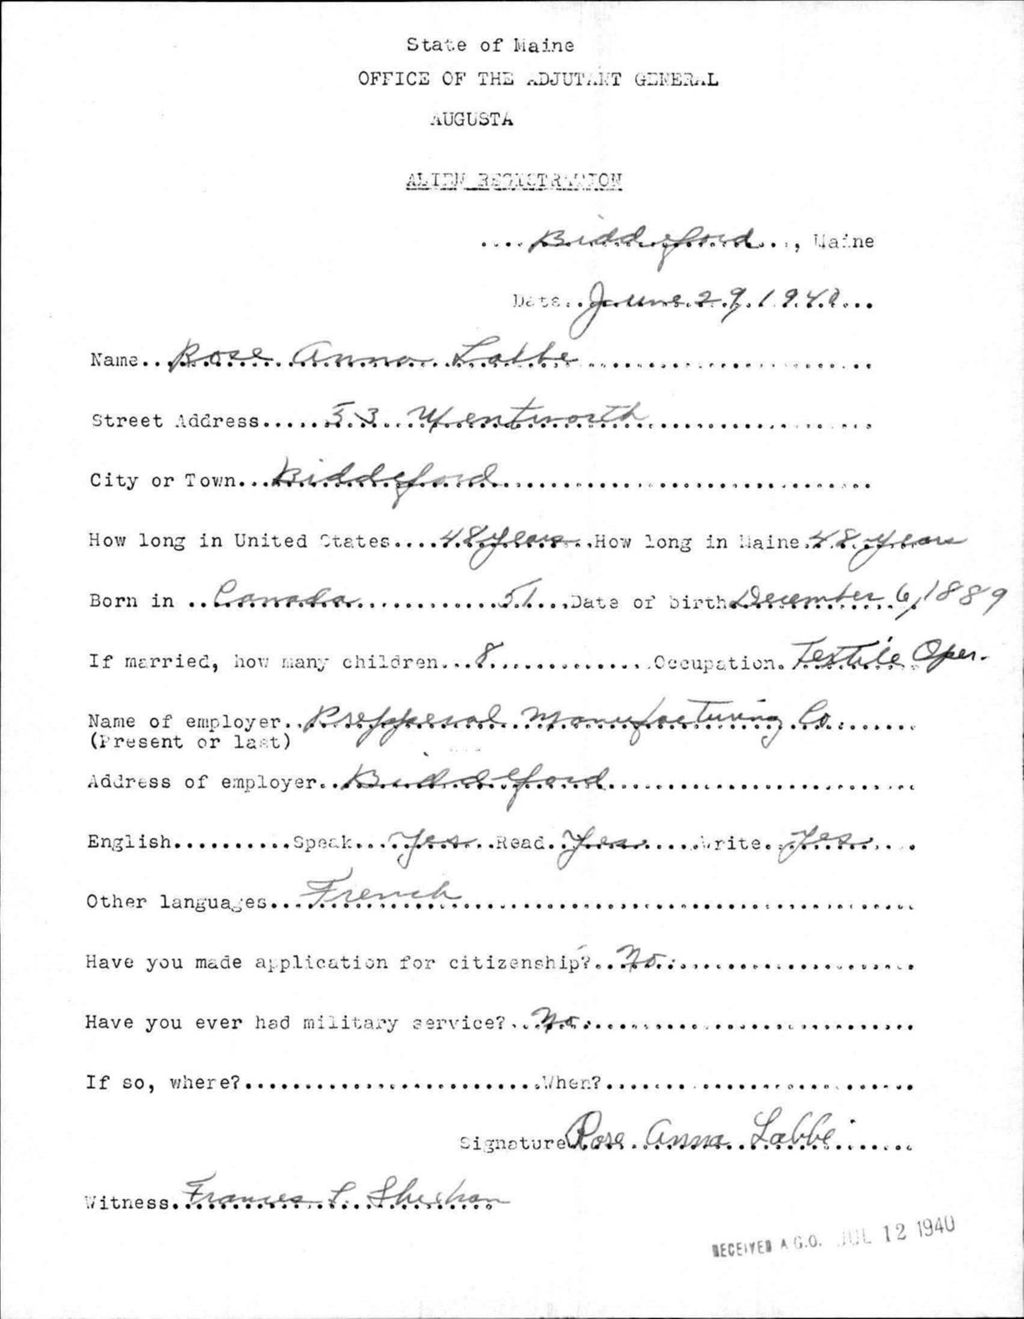 State of Maine
OFFICE OF THE ADJUTANT GENERAL
AUGUSTA
ALIEN REGISTRATION
....Biddeford...., Maine
Date..June 29, 1940...
Name...Rose Anna Labbe..................
Street Address......53 Wentworth..................
City or Town...Biddeford..................
How long in United States....48 years...How long in Maine.48 years
Born in ..Canada.............51....Date of birth December 6, 1889
If married, how many children...8...............Occupation.Textile Oper.
Name of employer..Pepperal Manufacturing Co.......
(Present or last)
Address of employer..Biddeford..................
English..........Speak...Yes...Read..Yes.....Write..Yes....
Other languages...French..................
Have you made application for citizenship?..No..................
Have you ever had military service?..No..................
If so, where?..........................When?..........................
Signature Rose Anna Labbé......
Witness.Frances L. Shechan
RECEIVED A.G.O. JUL 12 1940